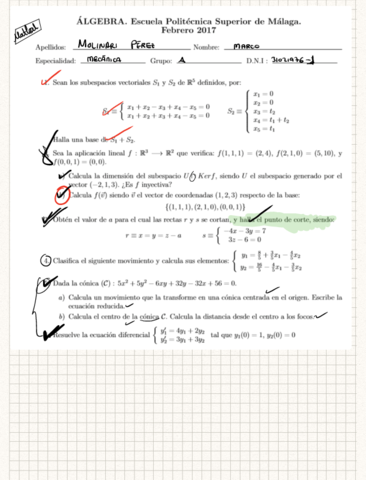 ÁLGEBRA. Escuela Politécnica Superior de Málaga.
Febrero 2017
Apellidos: MOLINARI PÉREZ Nombre: MARCO
Especialidad: MECÁNICA Grupo: A D.N.I:
1. Sean los subespacios vectoriales S₁ y S₂ de ℝ⁵ definidos, por:
S₁ ≡ { x₁ + x₂ − x₃ + x₄ − x₅ = 0
x₁ + x₂ + x₃ + x₄ − x₅ = 0
S₂ ≡ { x₁ = 0
x₂ = 0
x₃ = t₂
x₄ = t₁ + t₂
x₅ = t₁
Halla una base de S₁ + S₂.
Sea la aplicación lineal f : ℝ³ → ℝ² que verifica: f(1, 1, 1) = (2, 4), f(2, 1, 0) = (5, 10), y
f(0, 0, 1) = (0, 0).
Calcula la dimensión del subespacio U ∩ Kerf, siendo U el subespacio generado por el
vector (−2, 1, 3). ¿Es f inyectiva?
Calcula f(v⃗) siendo v⃗ el vector de coordenadas (1, 2, 3) respecto de la base:
{(1, 1, 1), (2, 1, 0), (0, 0, 1)}
Obtén el valor de a para el cual las rectas r y s se cortan, y halla el punto de corte, siendo:
r ≡ x = y = z − a s ≡ { −4x − 3y = 7
3x − 6 = 0
4. Clasifica el siguiente movimiento y calcula sus elementos:
Dada la cónica (C) : 5x² + 5y² − 6xy + 32y − 32x + 56 = 0.
a) Calcula un movimiento que la transforme en una cónica centrada en el origen. Escribe la
ecuación reducida.
b) Calcula el centro de la cónica C. Calcula la distancia desde el centro a los focos.
Resuelve la ecuación diferencial { y₁′ = 4y₁ + 2y₂
y₂′ = 3y₁ + 3y₂ tal que y₁(0) = 1, y₂(0) = 0